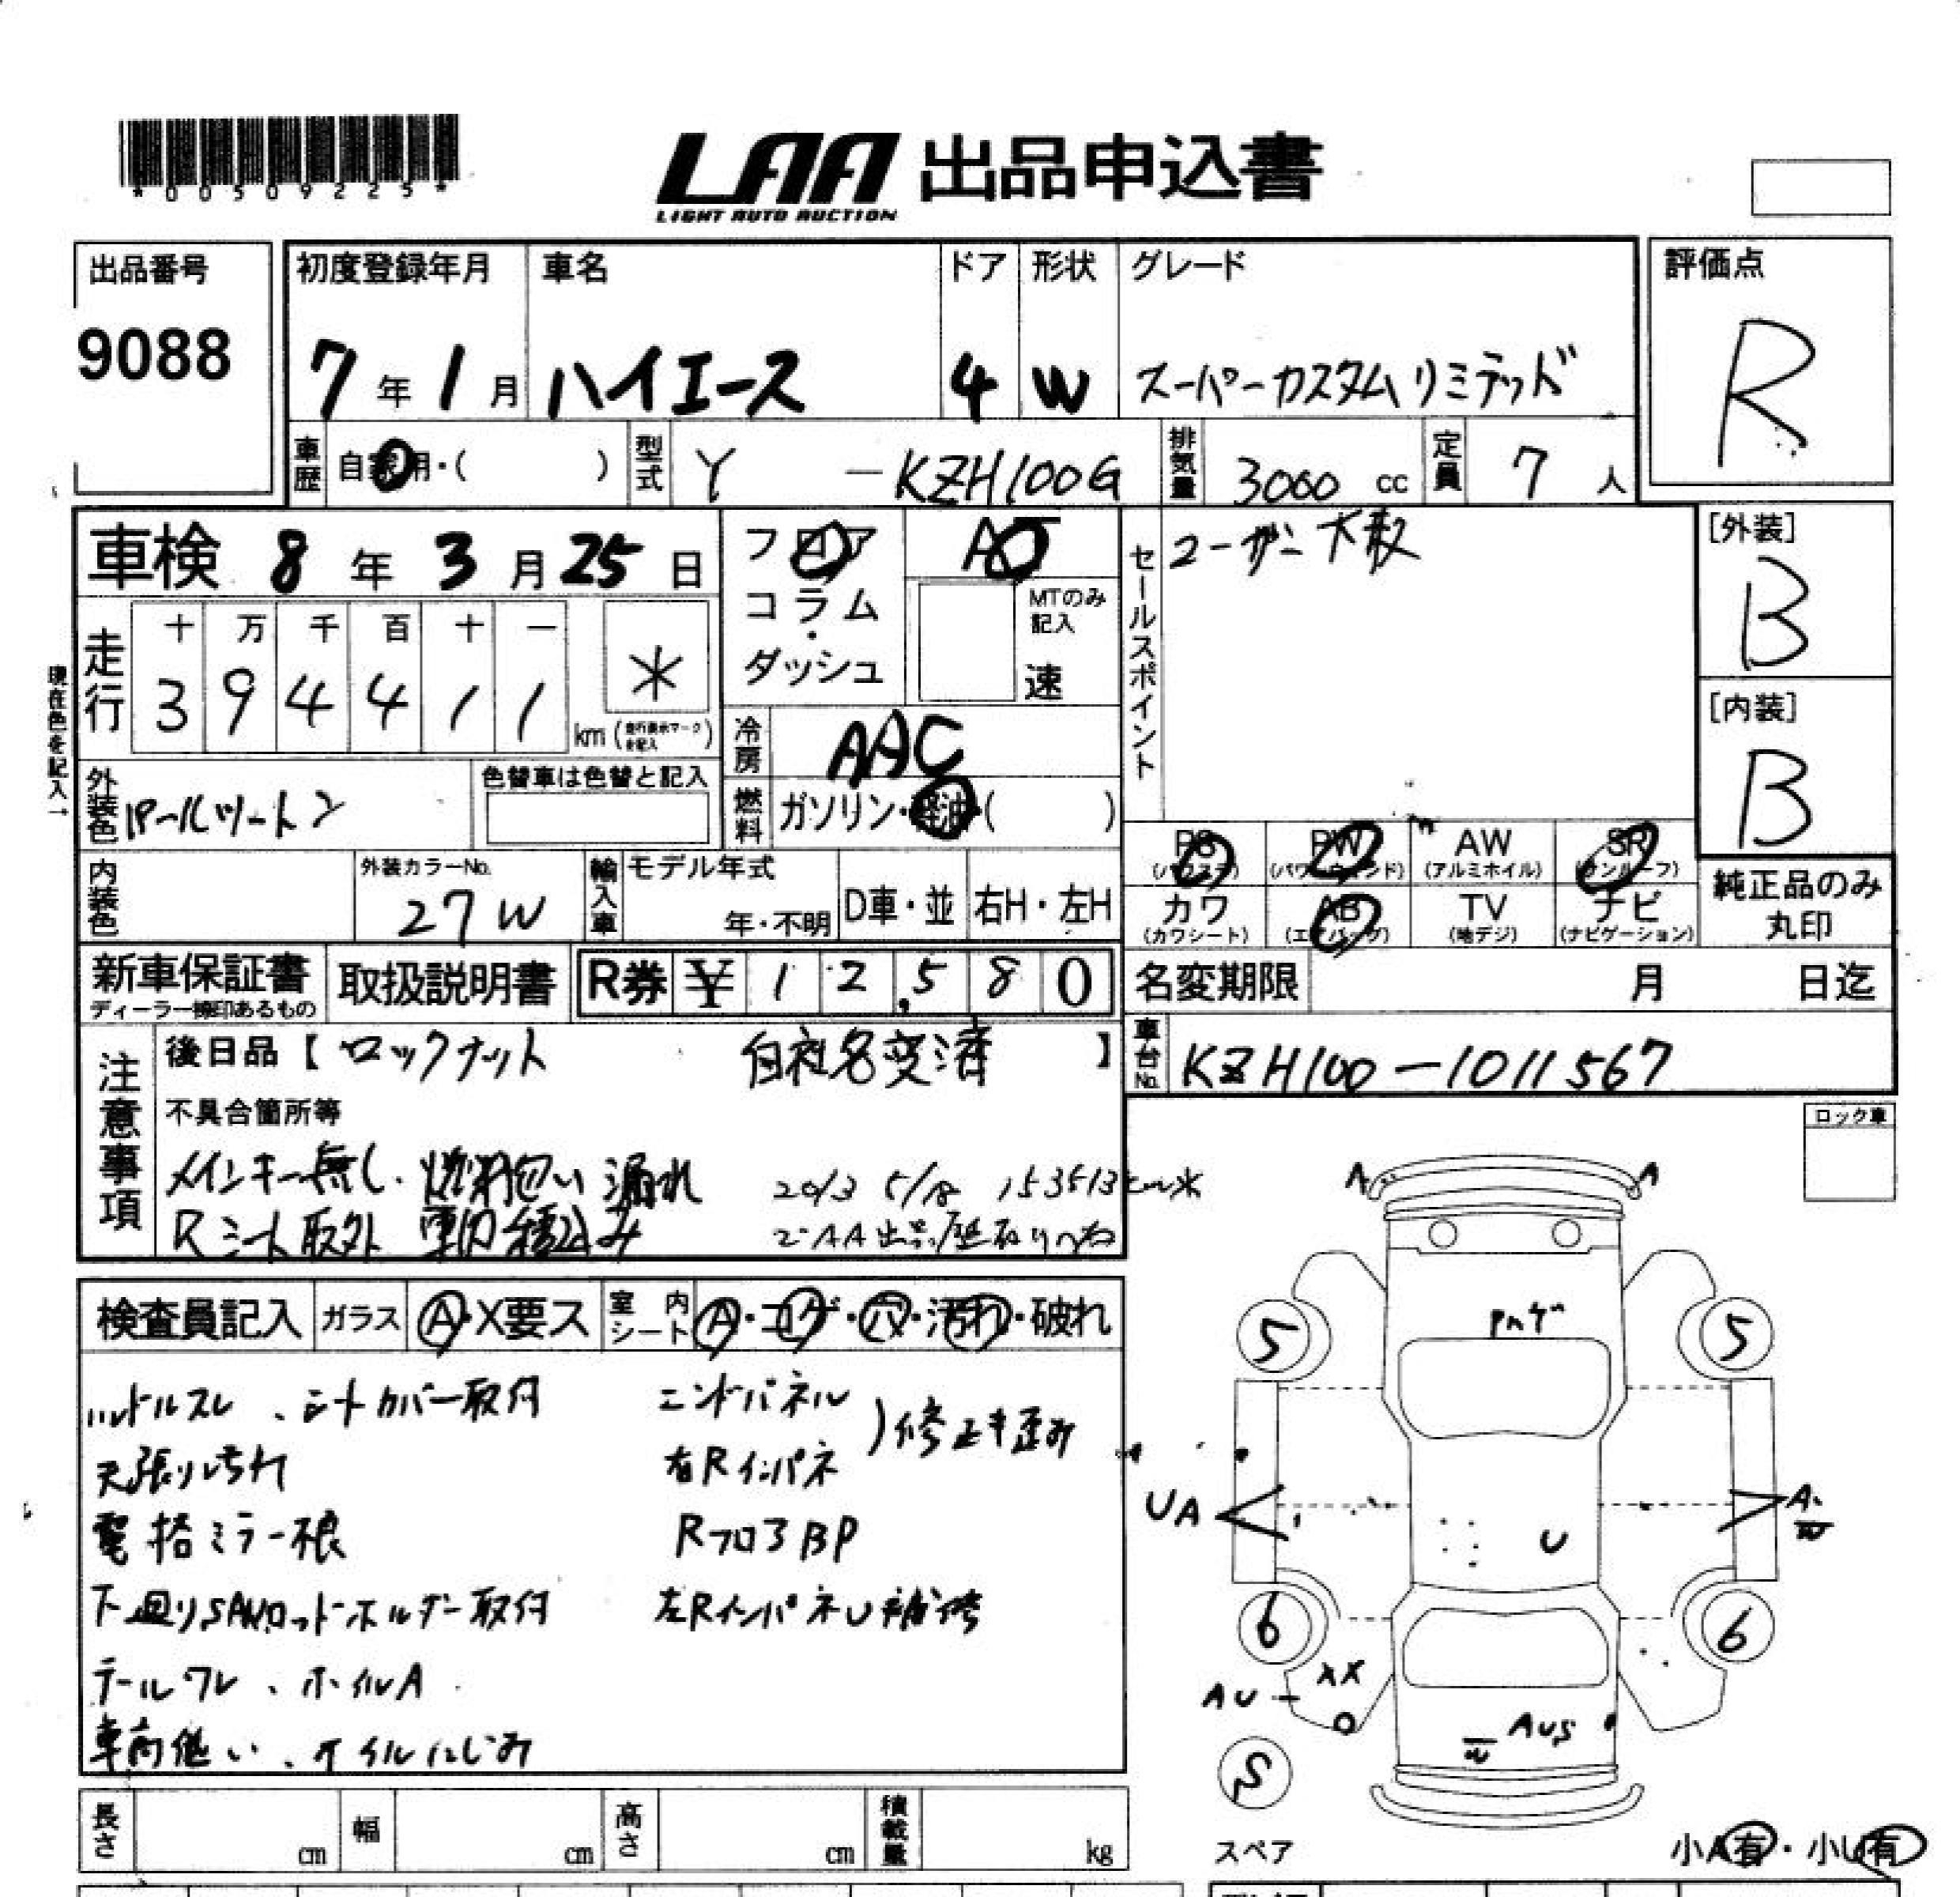 *00509225*
LAA 出品申込書
LIGHT AUTO AUCTION
出品番号
9088
初度登録年月
7年1月
車名
ハイエース
ドア
4
形状
W
グレード
スーパーカスタムリミテッド
評価点
R
車歴
自家用・( )
型式
Y -KZH100G
排気量
3000 cc
定員
7 人
車検 8年3月25日
フロア
コラム・ダッシュ
AT
MTのみ記入
速
セールスポイント
ユーザー大放
[外装]
B
[内装]
B
現在色を記入→
走行
十 万 千 百 十 一
3 9 4 4 1 1
km
*
冷房
AAC
外装色
パールツートン
色替車は色替と記入
燃料
ガソリン・軽油・( )
PS
(パワステ)
PW
(パワーウィンド)
AW
(アルミホイル)
SR
(サンルーフ)
カワ
(カワシート)
AB
(エアバッグ)
TV
(地デジ)
ナビ
(ナビゲーション)
純正品のみ
丸印
内装色
外装カラーNo.
27W
輸入車
モデル年式
年・不明
D車・並
右H・左H
新車保証書
取扱説明書
R券 ¥ 12,580
名変期限 月 日迄
注意事項
後日品【ロックナット 自社名変済】
車台No.
KZH100-1011567
不具合箇所等
メインキー無し、燃料匂い 漏れ
Rシート取外 車内積込み
2013 5/18 153513km*
ロック車
検査員記入
ガラス
A・X要ス
室内シート
A・コゲ・穴・汚れ・破れ
ハンドルスレ、シートカバー取付
天張り汚れ
電格ミラー不良
テールワレ、ホイルA
車高低い、オイルにじみ
エンドパネル
右Rインパネ
修正キ歪み
RフロアBP
左RインパネU補修
A
A
5
5
UA
A
U
6
6
XX
AU
AUS
S
スペア
小A有・小U有
長さ cm
幅 cm
高さ cm
積載量 kg